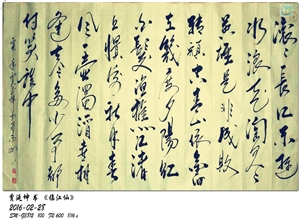 滚々长江东逝
水浪花淘尽
英雄是非成败
转頭空青山依旧
在几度夕阳红
白髮渔樵江渚
上惯看秋月春
风一壶濁酒喜相
逢古今多少事都
付笑谈中
书 《临江仙》
2016-02-28
100 F2.600